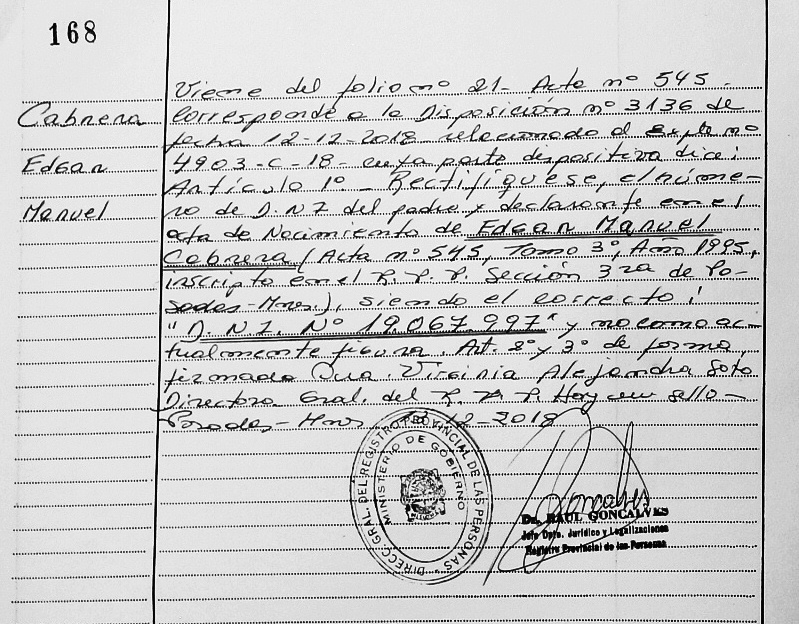 168
Cabrera
Edgar
Manuel
Viene del folio nº 21- Acta nº 545-
Corresponde a la Disposición nº 3136 de
fecha 12-12-2018- relacionado al expte nº
4903-C-18- cuya parte dispositiva dice:
Artículo 1º- Rectifíquese, el núme-
ro de D.N.I del padre y declarante en el
acta de Nacimiento de Edgar Manuel
Cabrera (Acta nº 545, Tomo 3º, Año 1995,
inscripto en el R.P.P. Sección 3ra de Po-
sadas-Mnes.), siendo el correcto:
"D.N.I. Nº 19.067.997" y no como ac-
tualmente figura. Art. 2º y 3º de forma,
firmado Dra. Virginia Alejandra Soto
Directora Gral. del R.P.P. Hay un sello-
Posadas-Mnes 12-2018
DIRECC. GRAL. DEL REGISTRO PROVINCIAL DE LAS PERSONAS
MINISTERIO DE GOBIERNO
Dr. RAUL GONCALVES
Jefe Dpto. Jurídico y Legalizaciones
Registro Provincial de las Personas